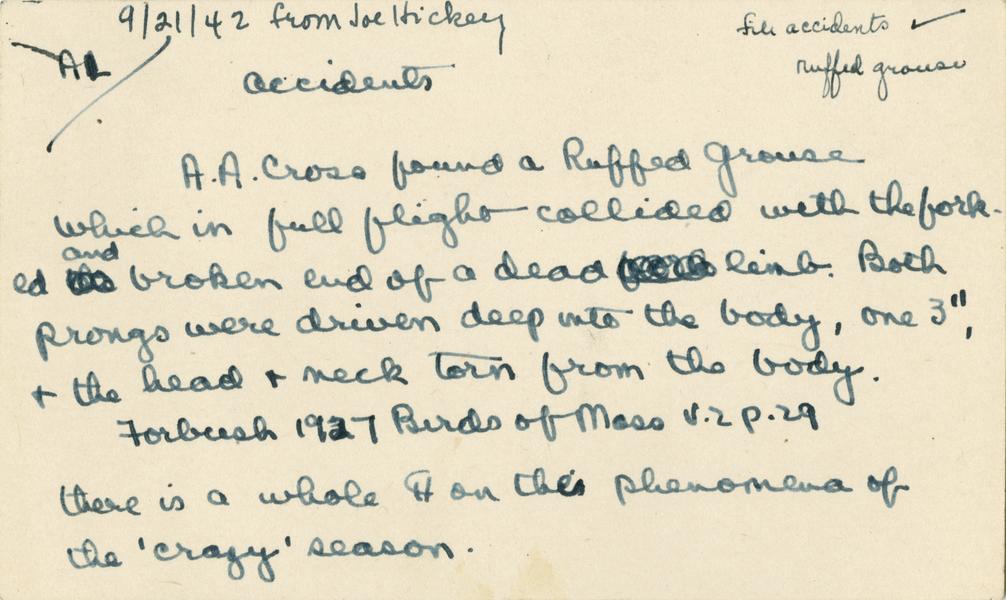 9/21/42 from Joe Hickey
file accidents ✓
AL
ruffed grouse
accidents
A.A. Cross found a Ruffed Grouse
which in full flight collided with the fork-
and
ed broken end of a dead limb. Both
prongs were driven deep into the body, one 3",
+ the head + neck torn from the body.
Forbush 1927 Birds of Mass v.2 p.29
there is a whole ¶ on this phenomena of
the 'crazy' season.